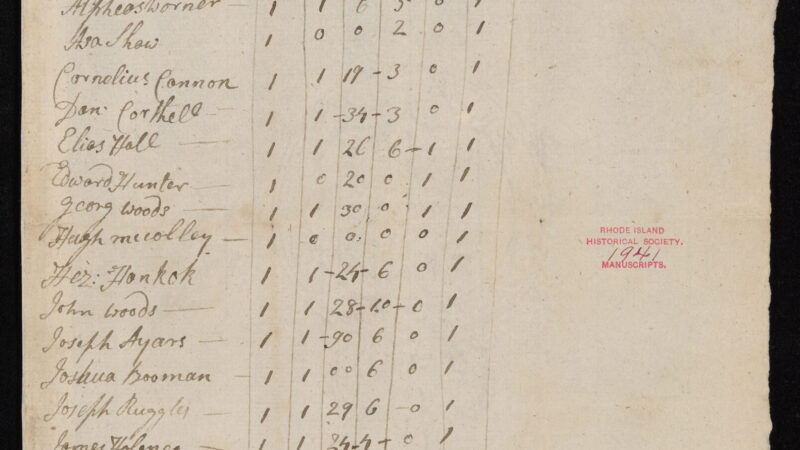 Alpheas worner — 1 1 6 5 0 1
Asa Shaw 1 0 0 2 0 1
Cornelius Cannon 1 1 19 - 3 0 1
Dan: Corthell — 1 1 - 34 - 3 0 1
Elias Hall — 1 1 26 6 - 1 1
Edword Hunter — 1 0 20 0 1 1
georg woods — 1 1 30 0 1 1
Hugh mccolley — 1 0 0 0 0 1
Hez: Hankok 1 1 - 24 - 6 0 1
John woods — 1 1 28 - 10 - 0 1
Joseph Ayars — 1 1 - 90 6 0 1
Joshua Booman — 1 1 00 6 0 1
Joseph Ruggles — 1 1 29 6 - 0 1
James 1 1 24 - 4 - 0 1
RHODE ISLAND
HISTORICAL SOCIETY.
1941
MANUSCRIPTS.